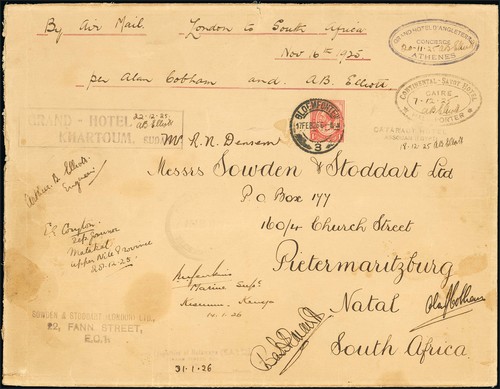 By Air Mail. London to South Africa
Nov 16th 1925
per Alan Cobham and A.B. Elliott
GRAND HOTEL D'ANGLETERRE
CONCIERGE
20-11-25 AB Elliott
ATHENES
CONTINENTAL-SAVOY HOTEL
CAIRE
7-12-25
AB Elliott
PORTER
18-12-25 AB Elliott
GRAND - HOTEL
KHARTOUM, SUDAN
22-12-25
AB Elliott
BLOEMFONTEIN
17 FEB 26
3
Mr R.N. Densem
Messrs Sowden & Stoddart Ltd
P O Box 177
160/4 Church Street
Pietermaritzburg
Natal
South Africa
Arthur B Elliott
Engineer
Malakal
Upper Nile Province
25.12.25
Marine Supt
Kisumu - Kenya
14.1.26
Alan J Cobham
SOWDEN & STODDART (LONDON) LTD.,
22, FANN STREET,
E.C.1.
31-1-26